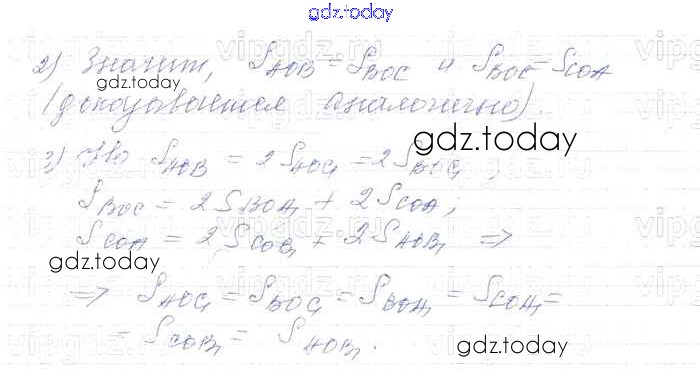 gdz.today
2) Значит, S_AOB = S_BOC и S_BOC = S_COA
gdz.today
(доказывается аналогично).
gdz.today
3) Но S_AOB = 2S_AOC₁ = 2S_BOC₁;
S_BOC = 2S_BOA₁ + 2S_COA₁;
S_COA = 2S_COB₁ + 2S_AOB₁ ⇒
gdz.today
⇒ S_AOC₁ = S_BOC₁ = S_BOA₁ = S_COA₁ =
= S_COB₁ = S_AOB₁.
gdz.today